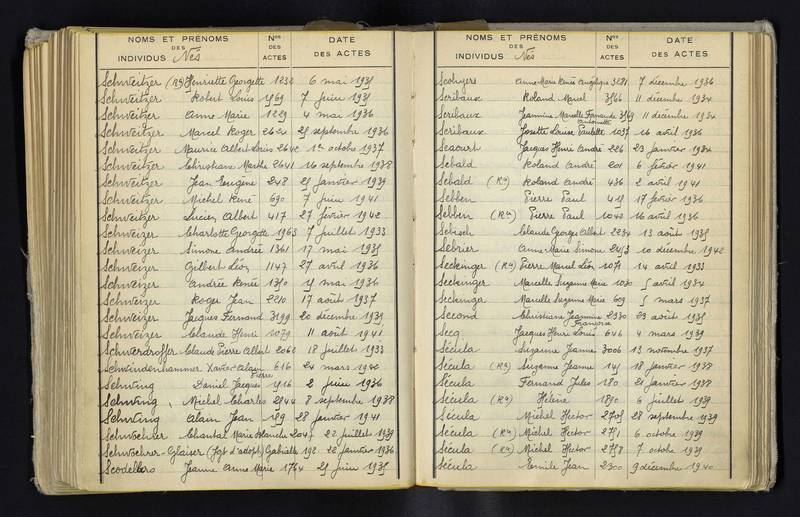 NOMS ET PRÉNOMS
DES
INDIVIDUS Nés
Nos
DES
ACTES
DATE
DES ACTES
Schweitzer (Ron) Henriette Georgette 1232 6 mai 1935
Schweitzer Robert Louis 1569 7 juin 1935
Schweitzer Anne Marie 1229 4 mai 1936
Schweitzer Marcel Roger 2622 25 septembre 1936
Schweitzer Maurice Albert Louis 2642 1er octobre 1937
Schweitzer Christiane Marthe 2641 16 septembre 1938
Schweitzer Jean Eugène 248 25 janvier 1939
Schweitzer Michel René 690 7 juin 1941
Schweitzer Lucien Albert 417 27 février 1942
Schweizer Charlotte Georgette 1963 7 juillet 1933
Schweizer Simone Andrée 1361 17 mai 1935
Schweizer Gilbert Léon 1147 27 avril 1936
Schweizer Andrée Renée 1350 15 mai 1936
Schweizer Roger Jean 2210 17 août 1937
Schweizer Jacques Fernand 3199 20 décembre 1939
Schweizer Claude Henri 1079 11 août 1941
Schwerdroffer Claude Pierre Albert 2062 18 juillet 1933
Schwindenhammer Xavier Alain Pierre 616 24 mars 1942
Schwing Daniel Jacques 1516 2 juin 1936
Schwing Michel Charles 2544 8 septembre 1938
Schwing Alain Jean 189 28 janvier 1941
Schwoehrer Chantal Marie Blanche 2045 22 juillet 1939
Schwoehrer-Glaiser (Jgt d'adopt) Gabrielle 192 22 janvier 1936
Scodellaro Jeanne Anne Marie 1754 25 juin 1935
NOMS ET PRÉNOMS
DES
INDIVIDUS Nés
Nos
DES
ACTES
DATE
DES ACTES
Anne Marie Renée Angélique 3281 7 décembre 1936
Scribaux Roland Marcel 3566 11 décembre 1934
Scribaux Jeannine Marcelle Fernande Antoinette 3569 11 décembre 1934
Scribaux Josette Louise Paulette 1037 16 avril 1936
Seacourt Jacques Henri André 226 23 janvier 1934
Sebald Roland André 201 6 février 1941
Sebald (Ron) Roland André 436 2 avril 1941
Sebben Pierre Paul 17 février 1936
Sebben (Ron) Pierre Paul 1042 16 avril 1936
Sebisch Claude Georges Albert 2234 13 août 1935
Sebrier Anne Marie Simone 2453 10 décembre 1942
Seckinger (Ron) Pierre Marcel Léon 1071 14 avril 1933
Seckinger Marcelle Suzanne Marie 1030 5 avril 1934
Seckinger Marcelle Suzanne Marie 609 5 mars 1937
Second Christiane Jeannine Françoise 2330 29 août 1935
Secq Jacques Henri Louis 646 4 mars 1939
Sécula Suzanne Jeanne 3006 13 novembre 1937
Sécula (Ron) Suzanne Jeanne 145 18 janvier 1938
Sécula Fernand Jules 180 21 janvier 1938
Sécula (Ron) Hélène 1890 6 juillet 1939
Sécula Michel Hector 2705 28 septembre 1939
Sécula (Ron) Michel Hector 2751 6 octobre 1939
Sécula (Ron) Michel Hector 2758 7 octobre 1939
Sécula Emile Jean 2300 9 décembre 1940